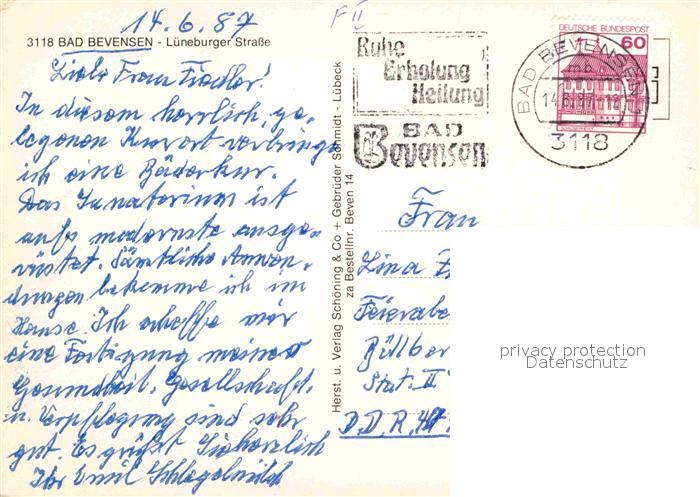 14.6.87
3118 BAD BEVENSEN - Lüneburger Straße
Liebe Frau Fiedler!
In diesem herrlich, ge-
legenen Kurort verbringe
ich eine Bäderkur.
Das Sanatorium ist
aufs modernste ausge-
rüstet. Sämtliche Anwen-
dungen bekomme ich im
Hause. Ich erhoffe mir
eine Festigung meiner
Gesundheit. Gesellschaft.
u. Verpflegung sind sehr
gut. Es grüßt Sie herzlich
Ihr Emil Schlegelmilch
Herst. u. Verlag Schöning & Co + Gebrüder Schmidt - Lübeck
za Bestellnr. Beven 14
F II
Ruhe
Erholung
Heilung
BAD
Bevensen
DEUTSCHE BUNDESPOST
60
BAD BEVENSEN
mb
3118
Frau
Lina
Feierabe
Stat. II
D.D.R.
privacy protection
Datenschutz